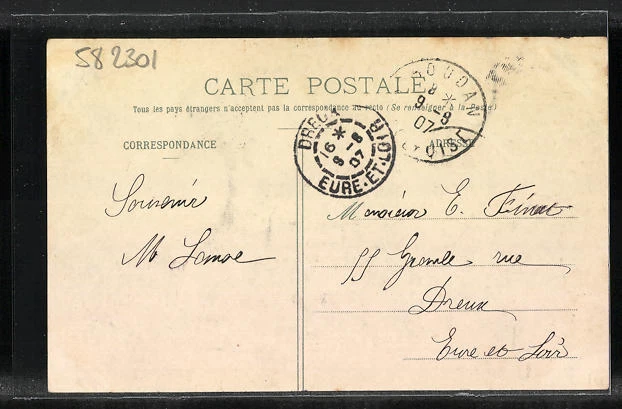 582301
CARTE POSTALE
Tous les pays étrangers n'acceptent pas la correspondance au recto (Se renseigner à la Poste)
CORRESPONDANCE
ADRESSE
HOUDAN
8 *
9 - 8
07
S. OISE
DREUX
16 *
8 - 8
07
EURE-ET-LOIR
Souvenir
M
Monsieur E.
55 Grande rue
Dreux
Eure et Loir